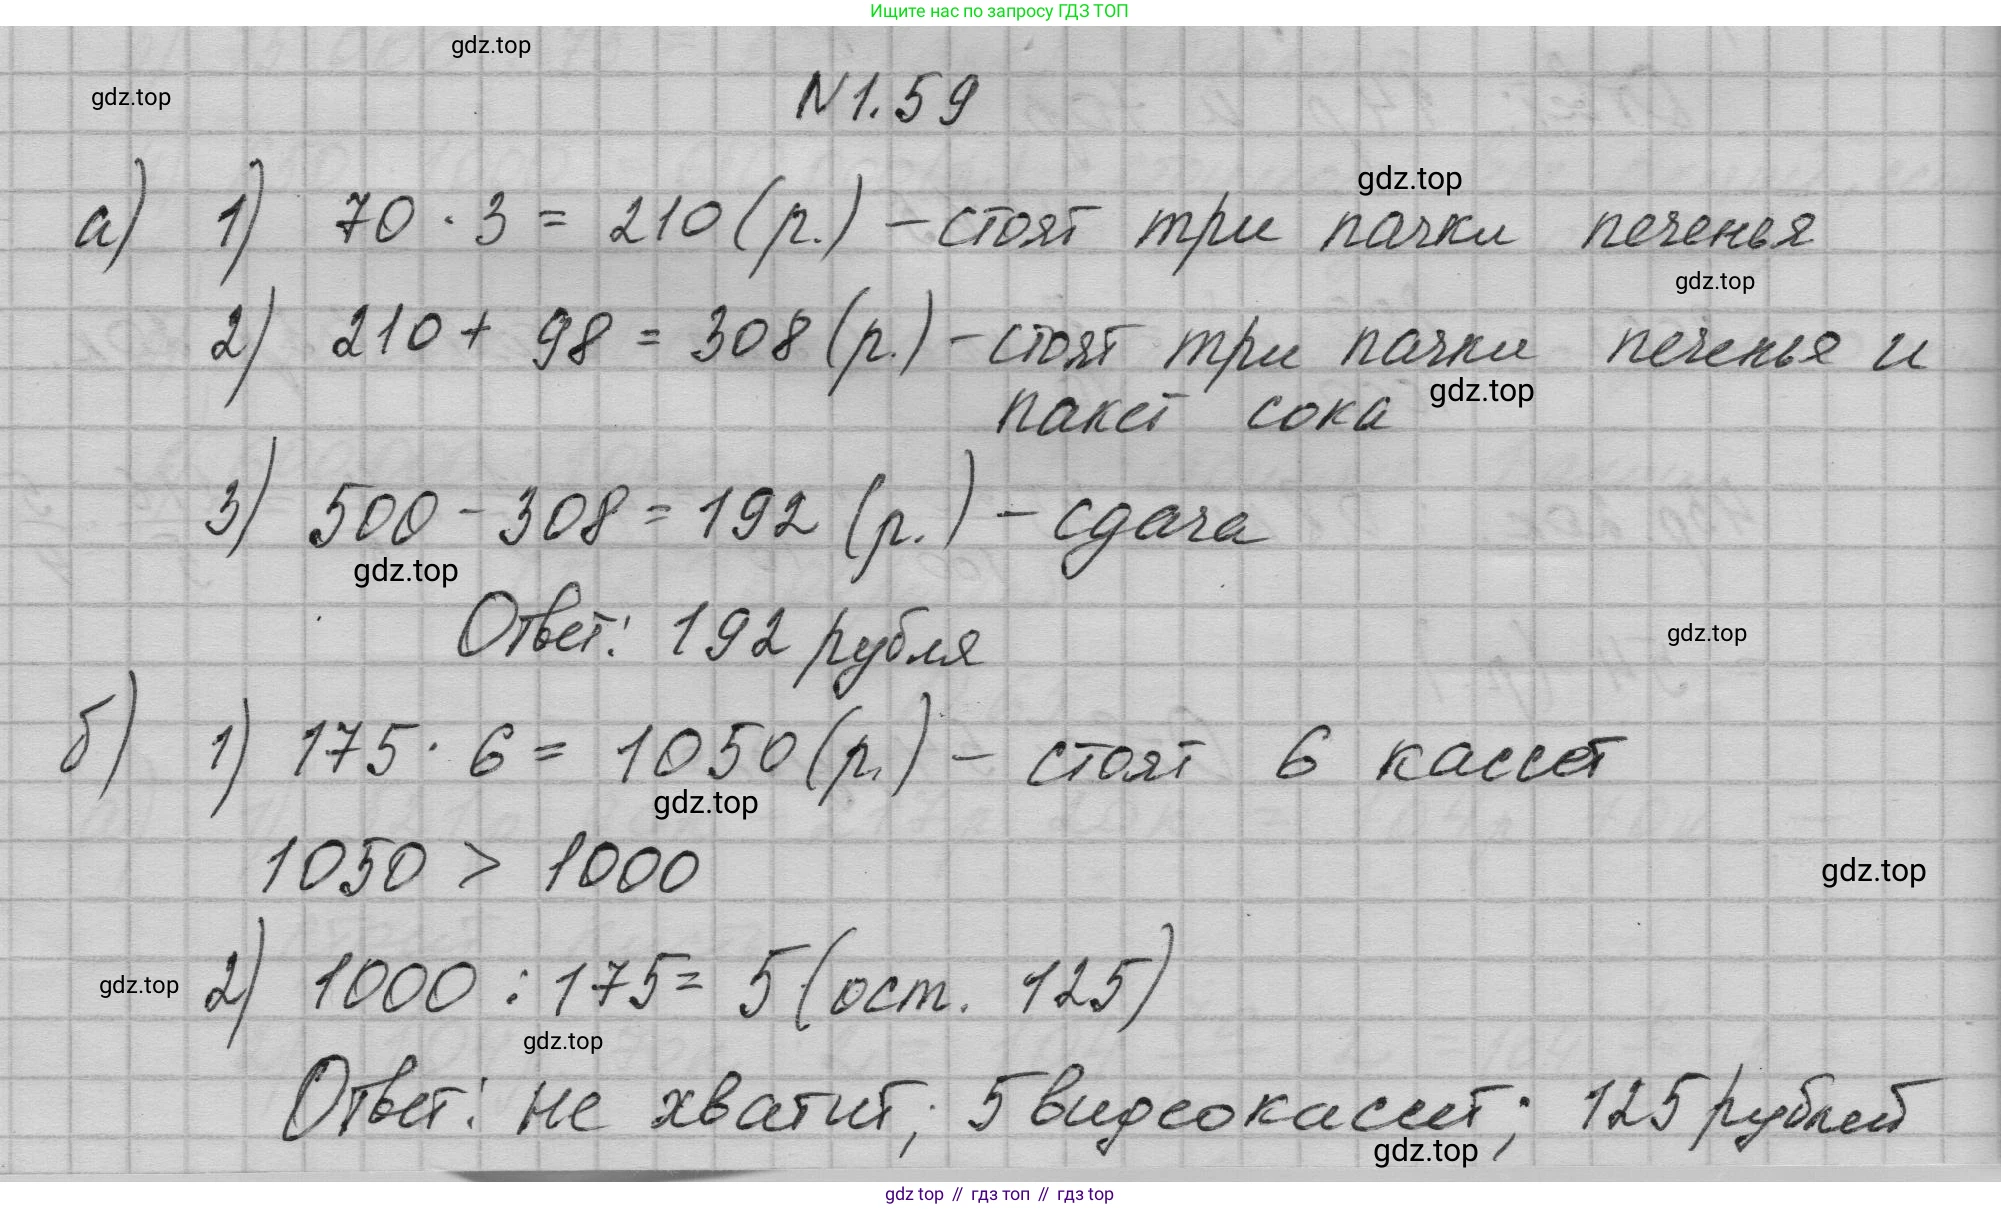 Ищите нас по запросу ГДЗ ТОП
gdz.top
gdz.top
N1.59
gdz.top
а) 1) 70 · 3 = 210 (р.) – стоят три пачки печенья
gdz.top
2) 210 + 98 = 308 (р.) – стоят три пачки печенья и
gdz.top
пакет сока
3) 500 – 308 = 192 (р.) – сдача
gdz.top
Ответ: 192 рубля
gdz.top
б) 1) 175 · 6 = 1050 (р.) – стоят 6 кассет
gdz.top
1050 > 1000
gdz.top
gdz.top
2) 1000 : 175 = 5 (ост. 125)
gdz.top
Ответ: не хватит; 5 видеокассет; 125 рублей
gdz.top
gdz top // гдз топ // гдз top